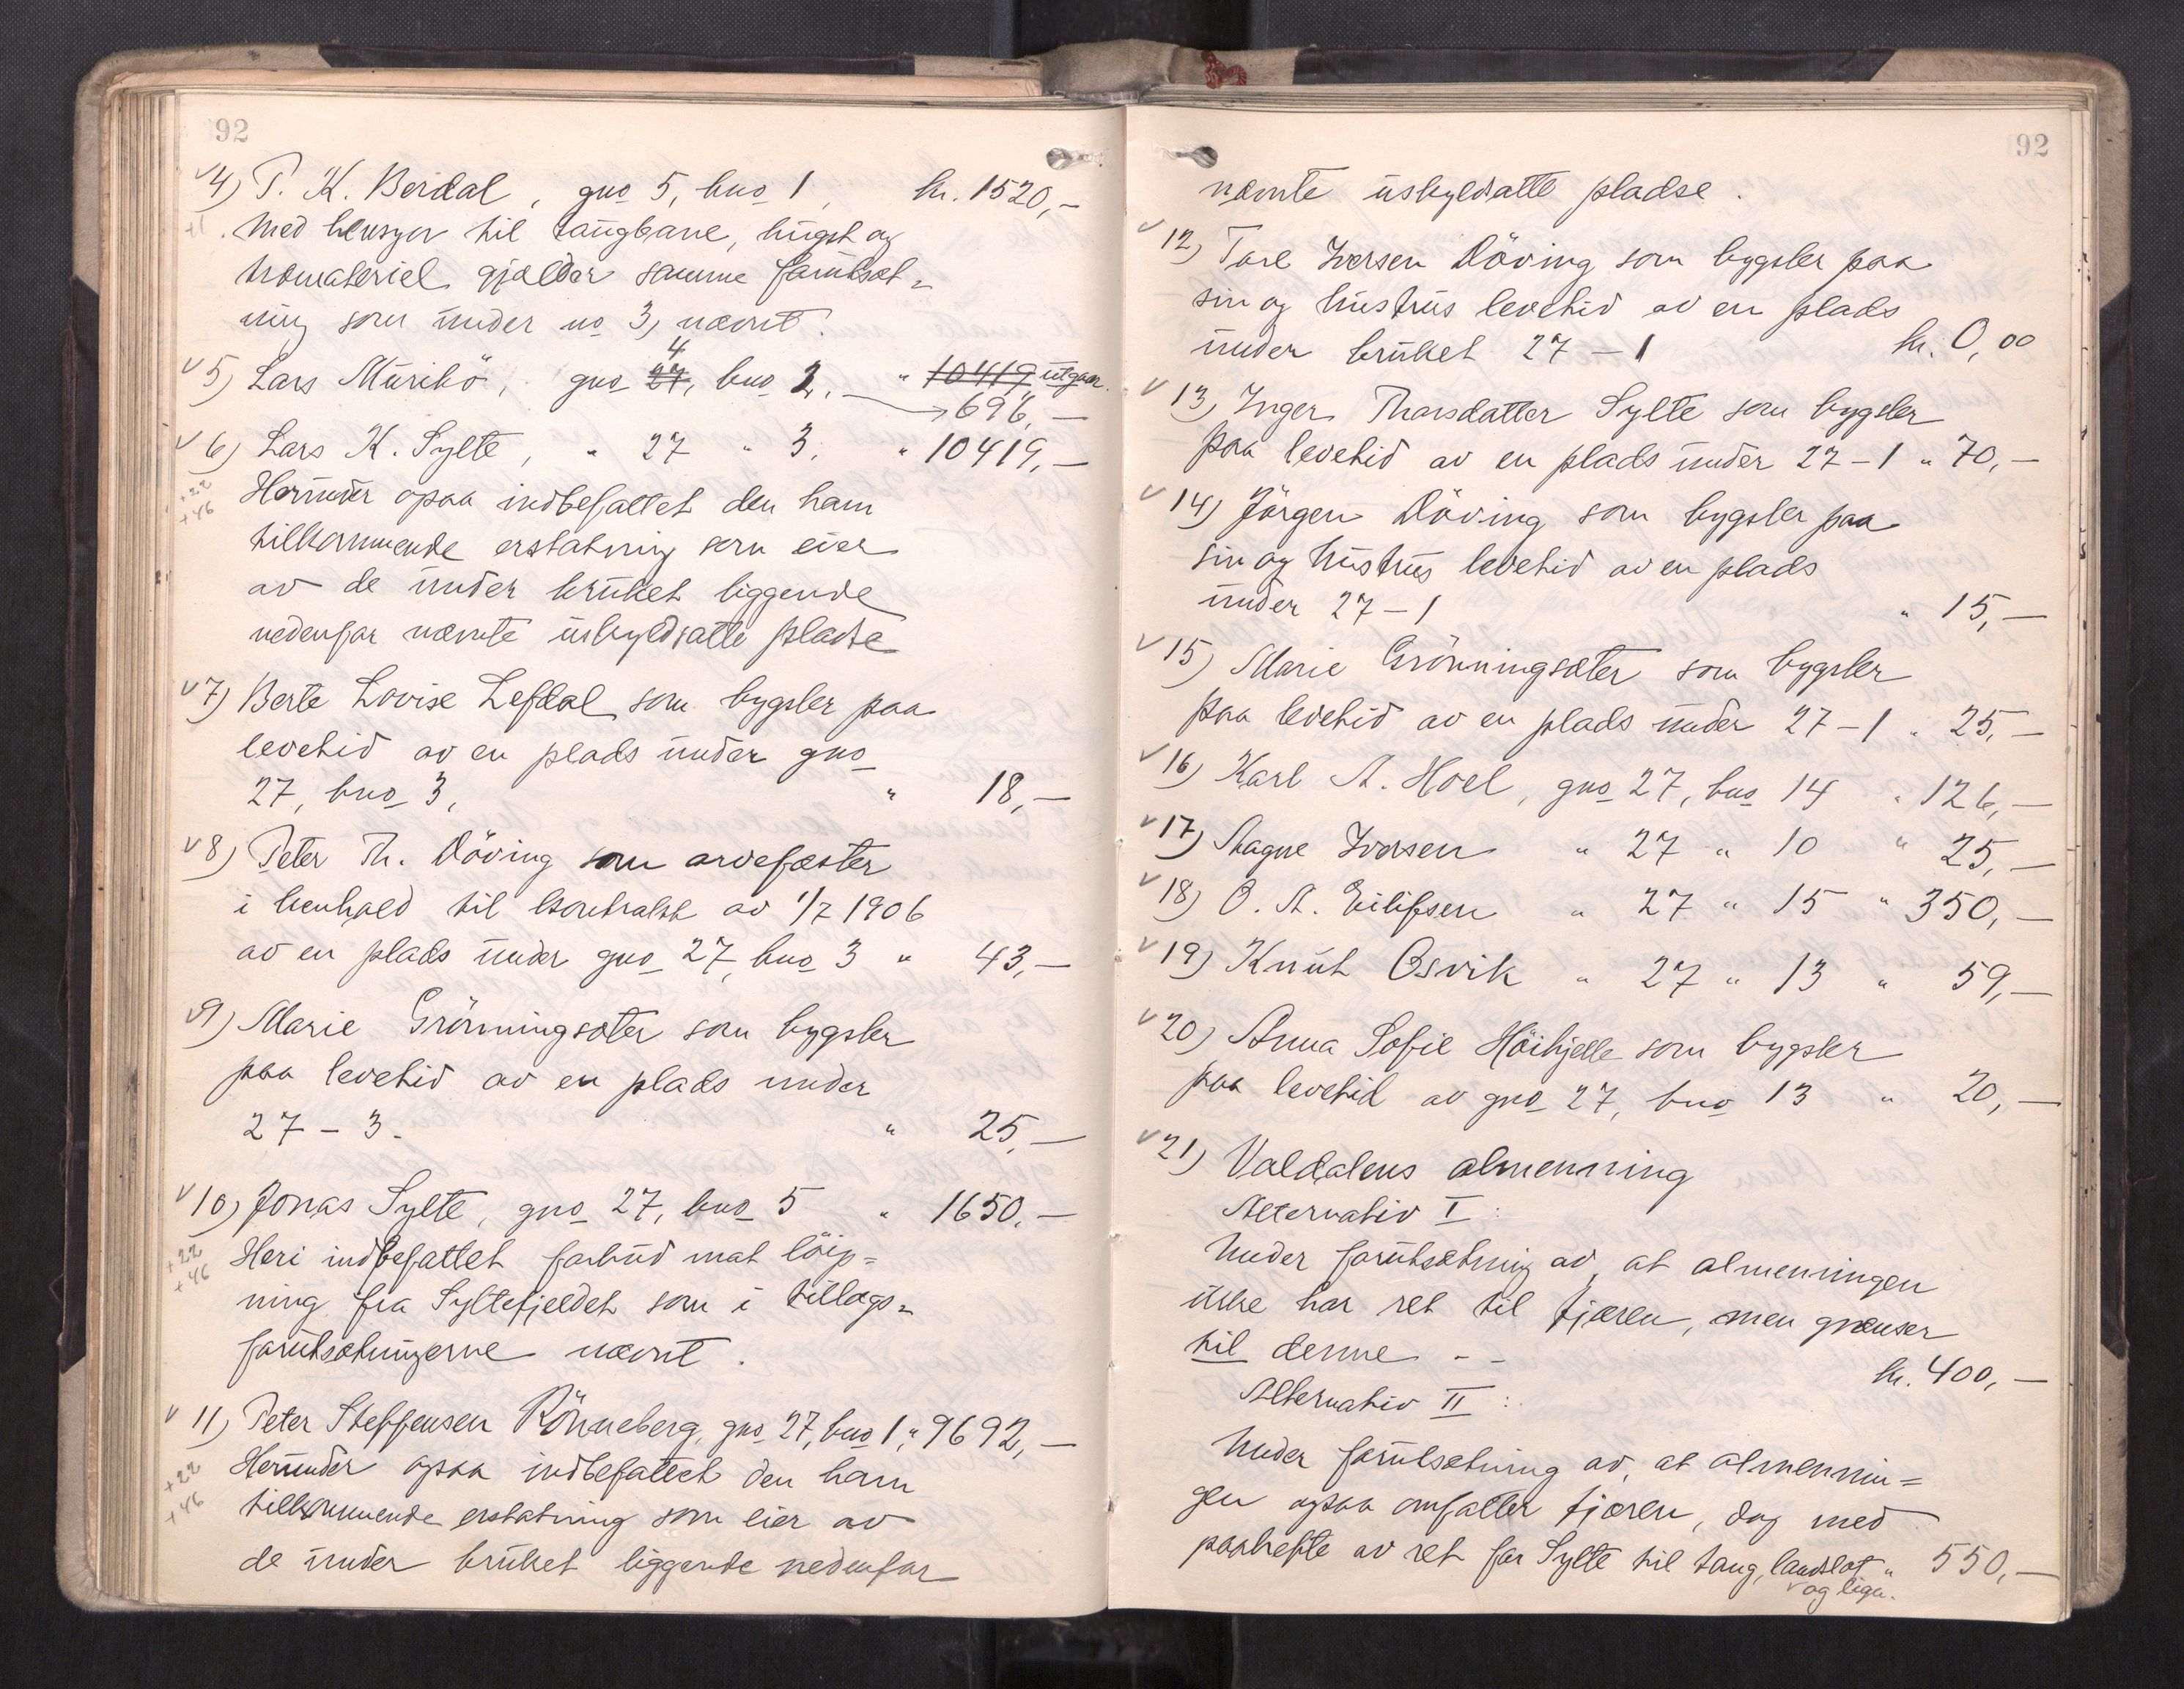 92
✓4) P. K. Berdal, gno 5, bno 1, kr. 1520,-
+11. Med hensyn til taugbane, hugst og
træmateriel gjælder samme forutsæt=
ning som under no 3, nævnt.
✓5) Lars Muribö, gno 27, 4 bno 2, " 10419, utgaar.
696,-
✓6) Lars K. Sylte, " 27 " 3, " 10419,-
+22
+46
Herunder ogsaa indbefattet den ham
tilkommende erstatning som eier
av de under bruket liggende
nedenfor nævnte uskyldsatte pladse
✓7) Berte Lovise Lefdal som bygsler paa
levetid av en plads under gno
27, bno 3, " 18,-
✓8) Peter Th. Döving som arvefæster
i henhold til kontrakt av 1/7 1906
av en plads under gno 27, bno 3 " 43,-
✓9) Marie Grönningsæter som bygsler
paa levetid av en plads under
27 - 3. " 25,-
✓10) Jonas Sylte, gno 27, bno 5 " 1650,-
+22
+46
Heri indbefattet forbud mot löip=
ning fra Syltefjeldet som i tillægs=
forutsætningerne nævnt.
✓ 11) Peter Steffensen Rönneberg, gno 27, bno 1, " 9692,-
+22
+46
Herunder ogsaa indbefattet den ham
tilkommende erstatning som eier av
de under bruket liggende nedenfor
92
nævnte uskyldsatte pladse.
✓12) Tore Iversen Döving som bygsler paa
sin og hustrus levetid av en plads
under bruket 27 - 1 kr. 0,00
✓13) Inger Thorsdatter Sylte som bygsler
paa levetid av en plads under 27 - 1 " 70,-
✓14) Jörgen Döving som bygsler paa
sin og hustrus levetid av en plads
under 27 - 1 " 15,-
✓15) Marie Grönningsæter som bygsler
paa levetid av en plads under 27 - 1 " 25,-
✓16) Karl A. Hoel, gno 27, bno 14 " 126,-
✓17) Magne Iversen " 27 " 10 " 25,-
✓18) O. A. Eilifsen " 27 " 15 " 350,-
✓19) Knut Osvik " 27 " 13 " 59,-
✓20) Anna Sofie Höihjelle som bygsler
paa levetid av gno 27, bno 13 " 20,-
✓21) Valdalens almenning
Alternativ I:
Under forutsætning av, at almenningen
ikke har ret til fjæren, men grænser
til denne - - kr. 400,-
Alternativ II:
Under forutsætning av, at almennin=
gen ogsaa omfatter fjæren, dog med
paahefte av ret for Sylte til tang, landslot " 550,-
✓og lign.